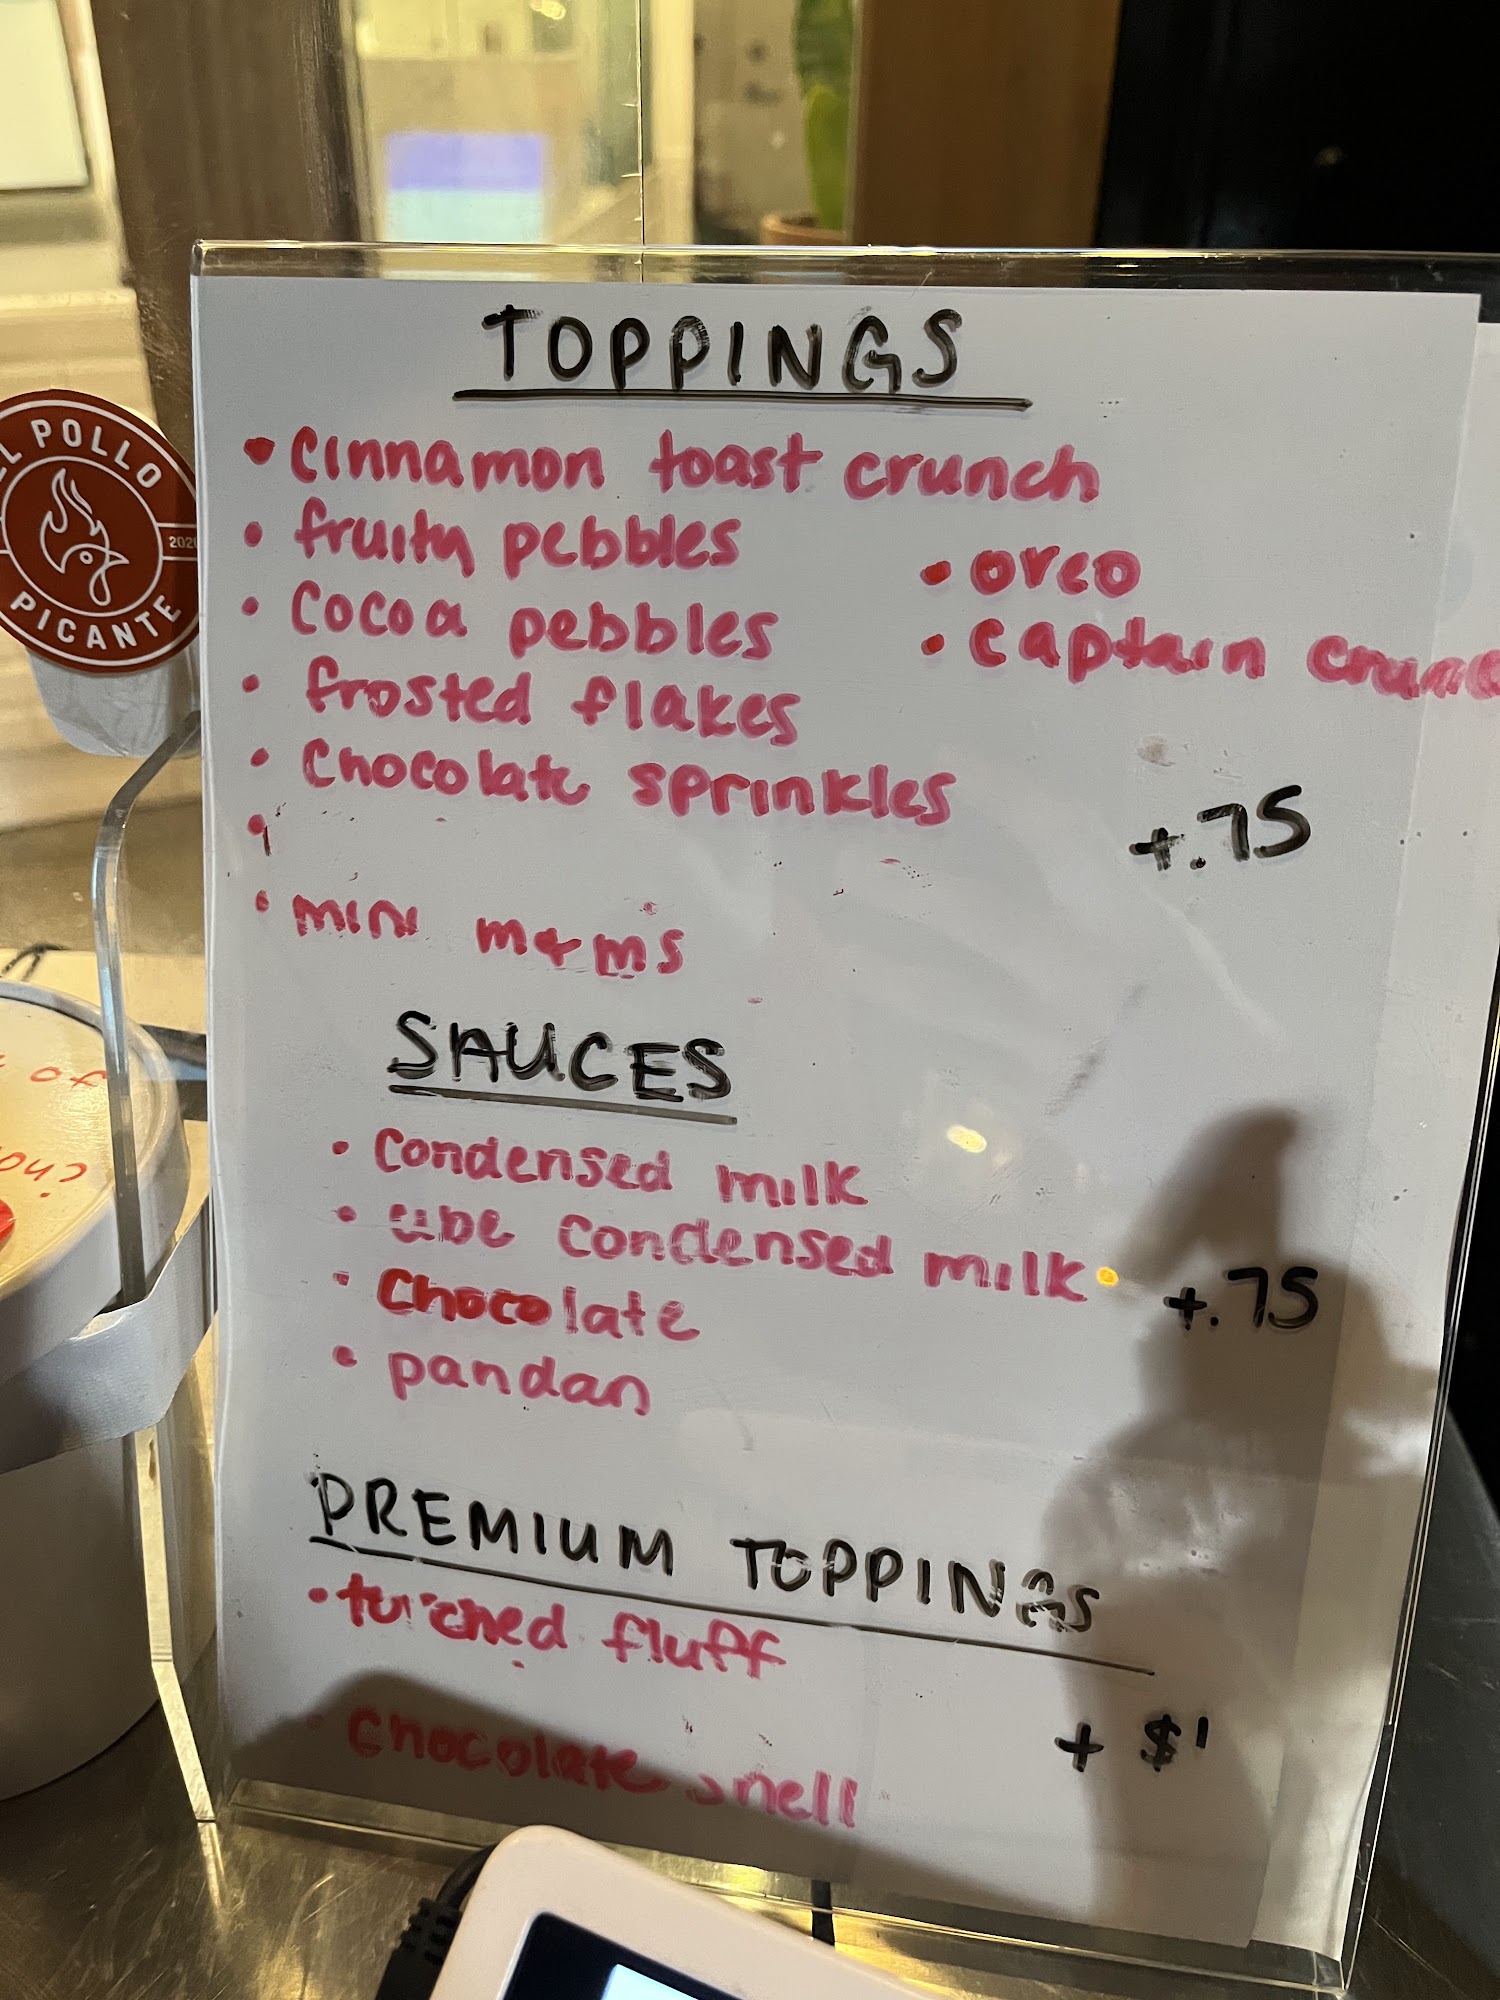 TOPPINGS
• cinnamon toast crunch
• fruity pebbles
• cocoa pebbles
• frosted flakes
• chocolate sprinkles
• mini m&ms
• oreo
• captain crunc
+.75
SAUCES
• condensed milk
• ube condensed milk
• chocolate
• pandan
+.75
PREMIUM TOPPINGS
• torched fluff
chocolate shell
+ $1
EL POLLO
2020
PICANTE